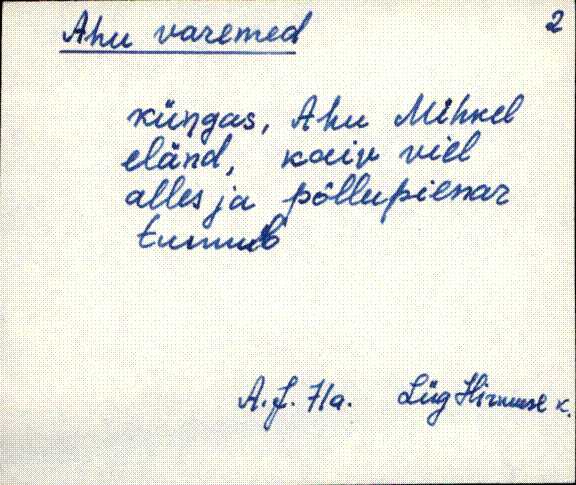 Ahu varemed
2
küngas, Ahu Mihkel
eländ, kaiv viel
alles ja põllupienar
tunnub
A. J. 71a. Lüg Hirmuse k.